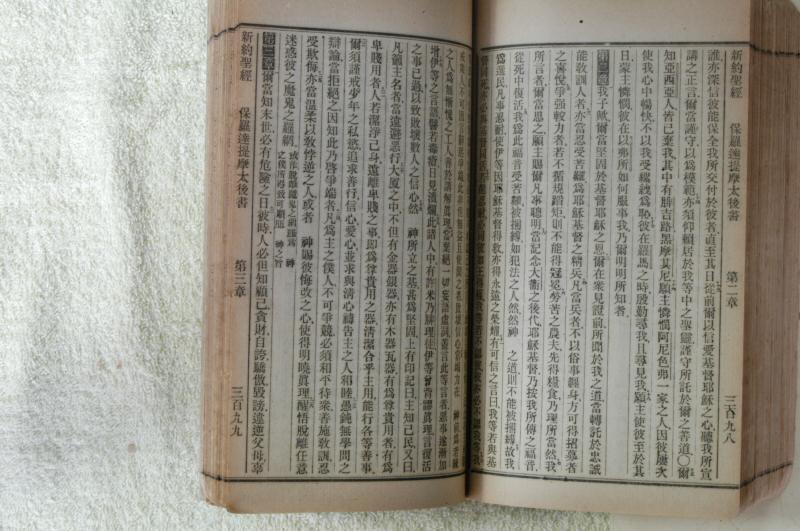 新約聖經　保羅達提摩太後書　第二章　三百九八
誰亦深信彼能保全我所交付於彼者直至其日從前爾以信愛基督耶穌之心聽我所宣
講之正言爾當謹守以爲模範亦須仰賴居於我等中之聖靈謹守所託於爾之善道〇爾
知亞西亞人皆已棄我其中有腓吉路黑摩其尼願主憐憫阿尼色弗一家之人因彼屢次
使我心中暢快不以我受縲絏爲恥彼在羅馬之時殷勤尋我且尋見我願主使彼至於其
日蒙主憐憫彼在以弗所如何服事我乃爾明明所知者
第二章我子歟爾當堅固於基督耶穌之恩爾在衆見證前所聞於我之道當轉託於忠誠
能教訓人者亦當忍受苦難爲耶穌基督之精兵凡當兵者不以俗事纏身方可得招募者
之喜悅爭强較力者若不循規蹈矩則不能得冠冕勞苦之農夫先得糧食乃理所當然我
所言者爾當思之願主賜爾凡事聰明當記念大衞之後代耶穌基督乃按我所傳之福音
從死中復活我爲此福音受苦難被捆縛如犯法之人然然神　之道則不能被捆縛故我
爲選民凡事忍耐使伊等因耶穌基督得救亦得永遠之榮耀有可信之言曰我等若與基
之人爲無慚愧之工人善於講解眞理當棄絕一切妄語虛詞蓋言此等言者惡事遂漸加
增伊等之言語譬若毒瘡日見潰爛此類人中有許米乃腓理徒伊等
之事已過以致敗壞數人之信心然　神所立之基甚爲堅固上有印記曰主知己民又曰
凡籲主名者當遠避惡行大厦之中不但有金器銀器亦有木器瓦器有爲尊貴用者有爲
卑賤用者人若潔淨己身遠離卑賤之事即爲尊貴用之器清潔合乎主用能行各等善事
爾須謹戒少年之私慾追求善行信心愛心並求與清心禱告主之人和睦愚鈍無學問之
辯論當拒絕之因知此乃啓爭端者凡爲主之僕人不可爭競必須和平待衆善施敎訓忍
受欺侮亦當溫柔以敎悖逆之人或者　神賜彼悔改之心使得明曉眞理醒悟脫離任意
迷惑彼之魔鬼之羅網
第三章爾當知末世必有危險之日彼時人必但知顧己貪財自誇驕傲毀謗違逆父母辜
新約聖經　保羅達提摩太後書　第三章　三百九九